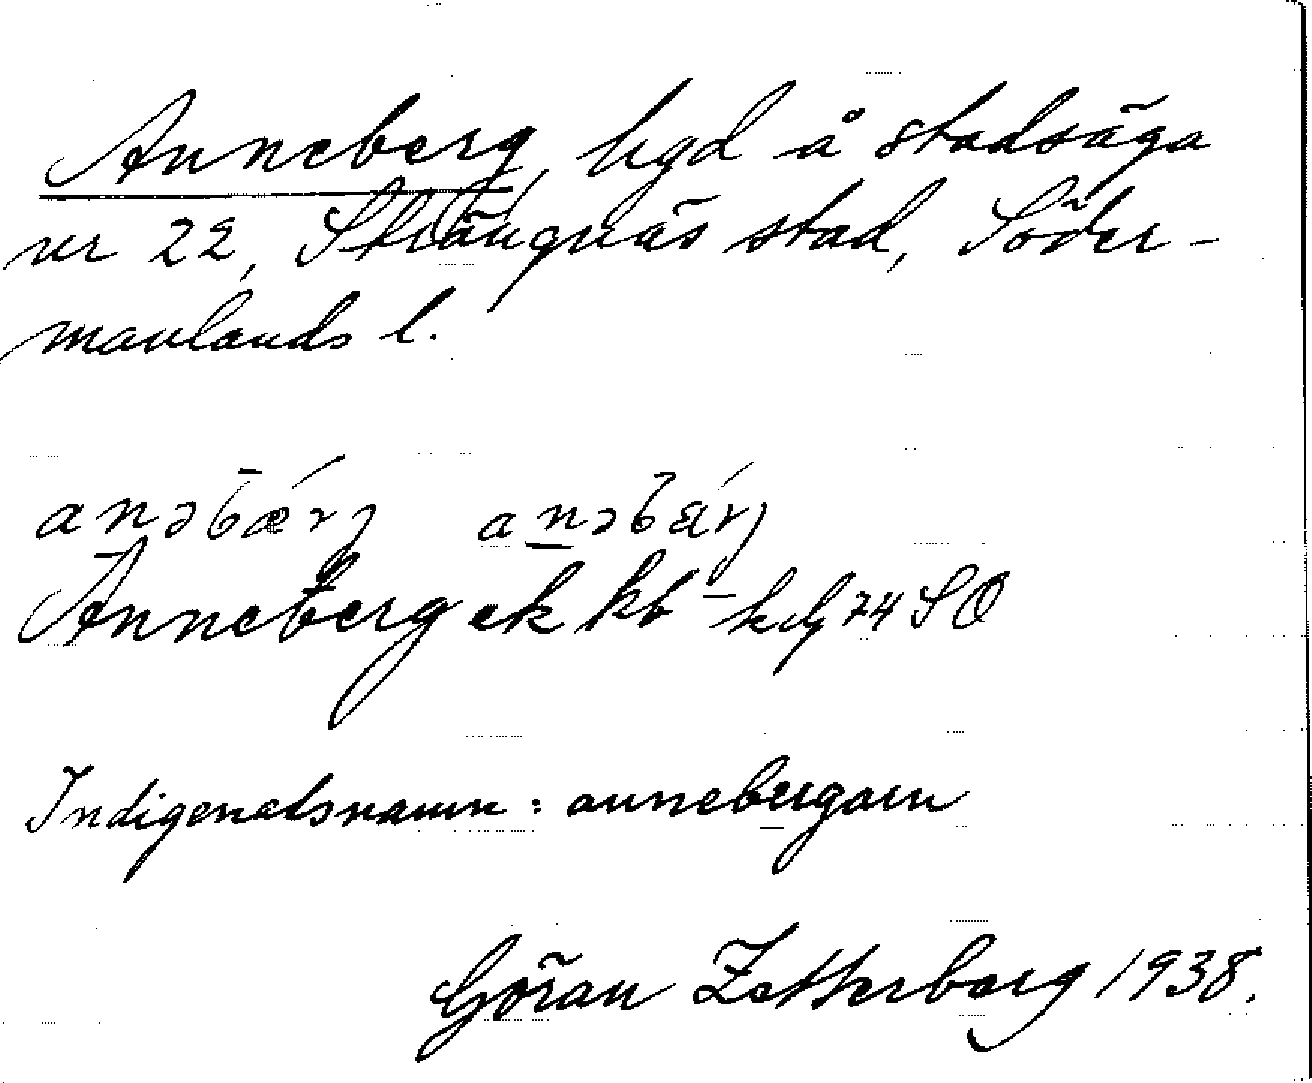 Anneberg, lgd å stadsäga
nr 22, Strängnäs stad, Söder-
manlands l.
anəbærj anəbærj
Anneberg ek kb – hfl 74 SO
Indigenatsnamn: annebergarn
Göran Zetterberg 1938.